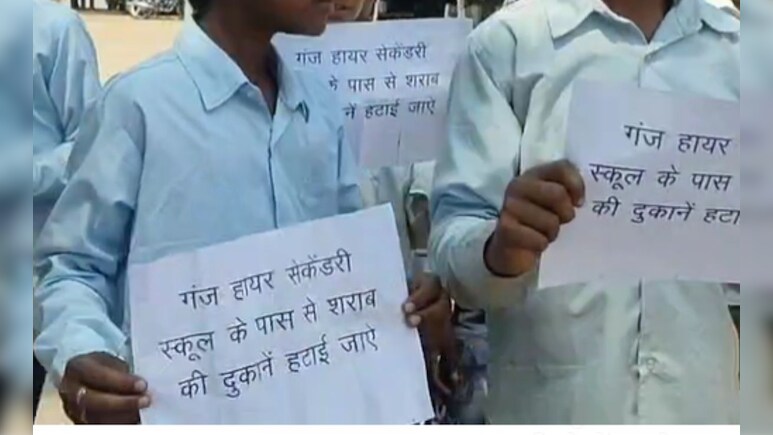 गंज हायर सेकेंडरी
के पास से शराब
नें हटाई जाऐ
गंज हायर
स्कूल के पास
की दुकानें हटा
गंज हायर सेकेंडरी
स्कूल के पास से शराब
की दुकानें हटाई जाऐ